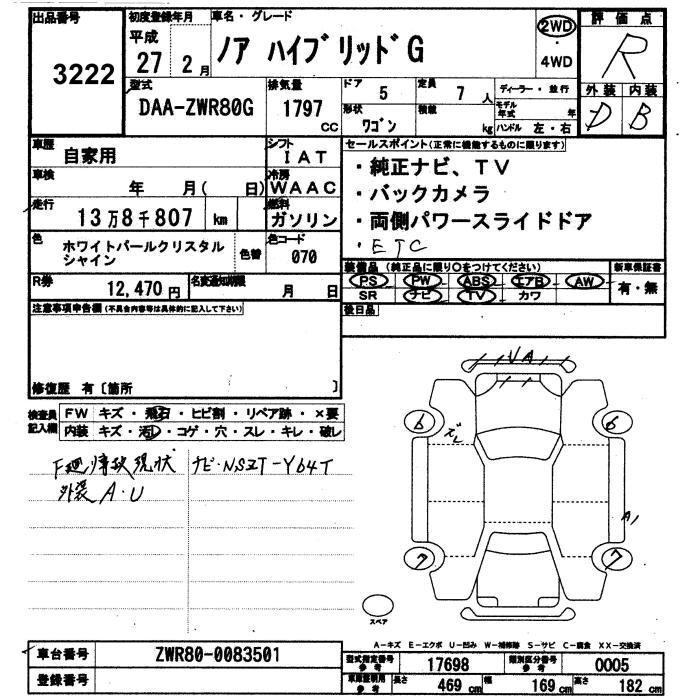 出品番号
3222
初度登録年月
平成
27 2 月
車名・グレード
ノア ハイブリッドG
2WD
・
4WD
評価点
R
外装 内装
D B
型式
DAA-ZWR80G
排気量
1797
cc
ドア 5
定員 7 人
ディーラー・並行
形状
ワゴン
積載 kg
モデル年式 年
ハンドル 左・右
車歴
自家用
シフト
IAT
車検
年 月( 日)
冷房
WAAC
走行
13万8千807 km
燃料
ガソリン
色
ホワイトパールクリスタル
シャイン
色替
色コード
070
R券
12,470 円
名変通知期限
月 日
セールスポイント(正常に機能するものに限ります)
・純正ナビ、TV
・バックカメラ
・両側パワースライドドア
・ETC
装備品(純正品に限り○をつけてください)
PS PW ABS エアB AW
SR ナビ TV カワ
新車保証書
有・無
後日品
注意事項申告欄(不具合内容等は具体的に記入して下さい)
修復歴 有〔箇所 〕
検査員
記入欄
FW キズ・飛石・ヒビ割・リペア跡・×要
内装 キズ・汚レ・コゲ・穴・スレ・キレ・破レ
現状 ナビ・NSZT-Y64T
外装A・U
VA
6 6
ズレ
A1
7 7
スペア
A-キズ E-エクボ U-凹み W-補修跡 S-サビ C-腐食 XX-交換済
車台番号
ZWR80-0083501
登録番号
型式指定番号
参考
17698
類別区分番号
参考
0005
車庫証明用
参考
長さ 469 cm
幅 169 cm
高さ 182 cm